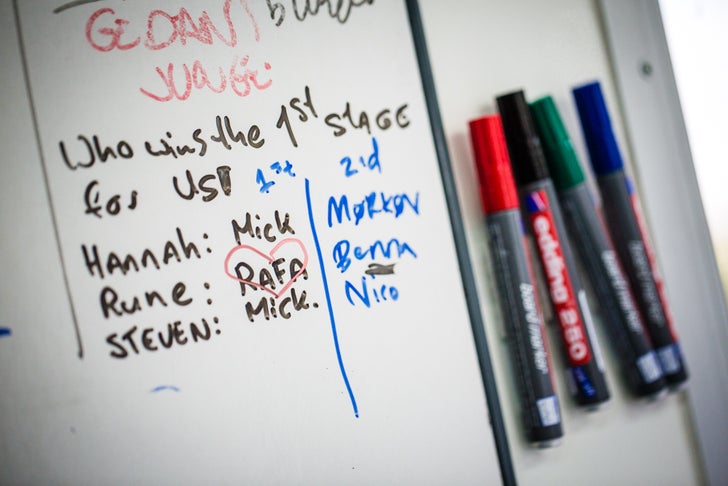 JUNGE
Who wins the 1st STAGE
for US? 1st 2nd
HANNAH: Mick MØRKØV
Rune: RAFA Benna
STEVEN: Mick. Nico
edding 250
board marker
board marker